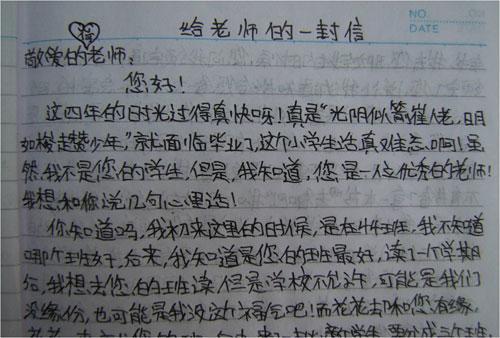 给老师的一封信
NO.
DATE
敬爱的老师:
您好!
这四年的时光过得真快呀!真是“光阴似箭催人老,日月
如梭赶少年。”就面临毕业了,这个小学生活真难忘啊!虽
然,我不是您的学生,但是,我知道,您是一位优秀的老师!
我想和你说几句心里话!
你知道吗,我初来这里的时候,是在4年班,我不知道
哪个班好,后来,我知道是您的班最好,读了一个学期
后,我想去您的班读,但是学校不允许,可能是我们
没缘份,也可能是我没这个福气吧!而花花却和您有缘,